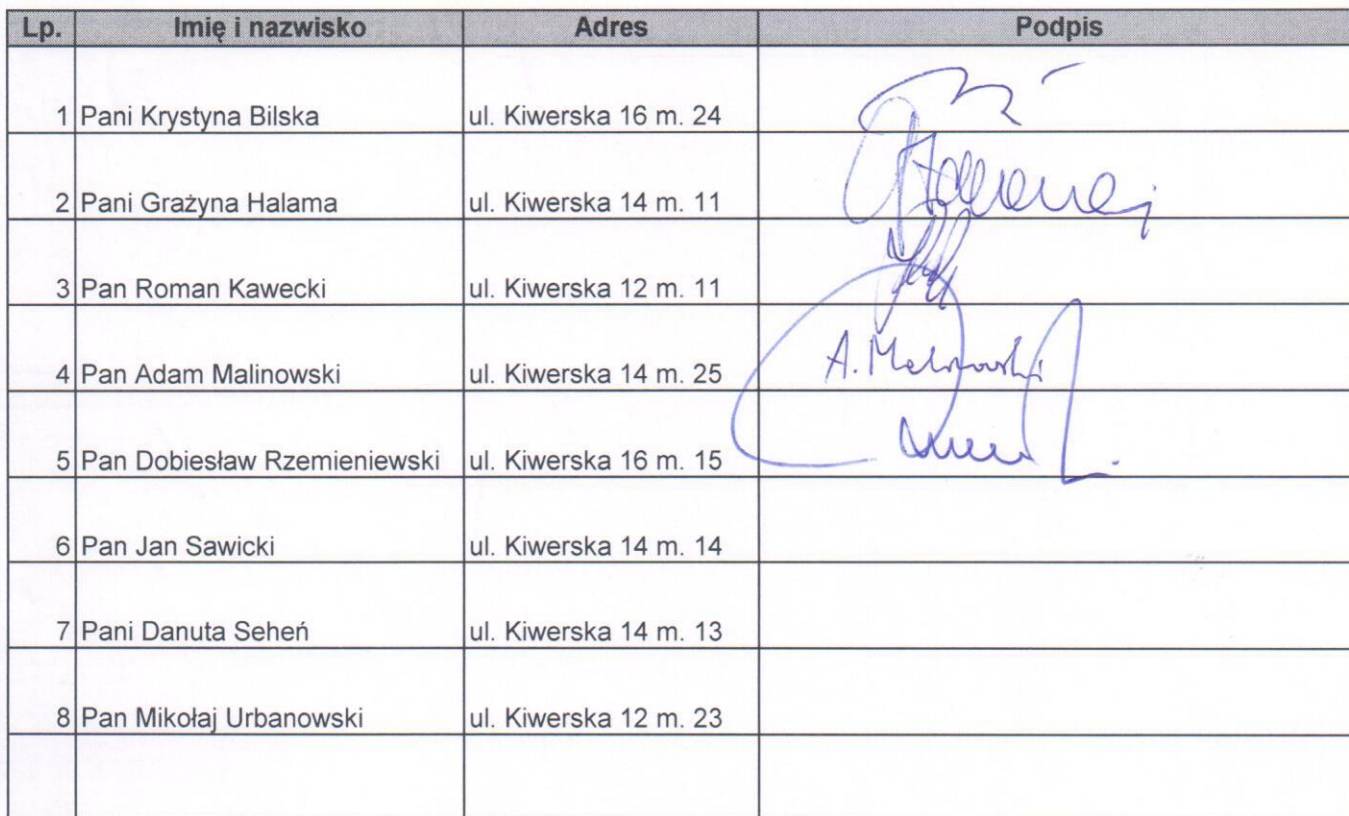 Lp. Imię i nazwisko Adres Podpis
1 Pani Krystyna Bilska ul. Kiwerska 16 m. 24
2 Pani Grażyna Halama ul. Kiwerska 14 m. 11
3 Pan Roman Kawecki ul. Kiwerska 12 m. 11
4 Pan Adam Malinowski ul. Kiwerska 14 m. 25 A. Malinowski
5 Pan Dobiesław Rzemieniewski ul. Kiwerska 16 m. 15
6 Pan Jan Sawicki ul. Kiwerska 14 m. 14
7 Pani Danuta Seheń ul. Kiwerska 14 m. 13
8 Pan Mikołaj Urbanowski ul. Kiwerska 12 m. 23